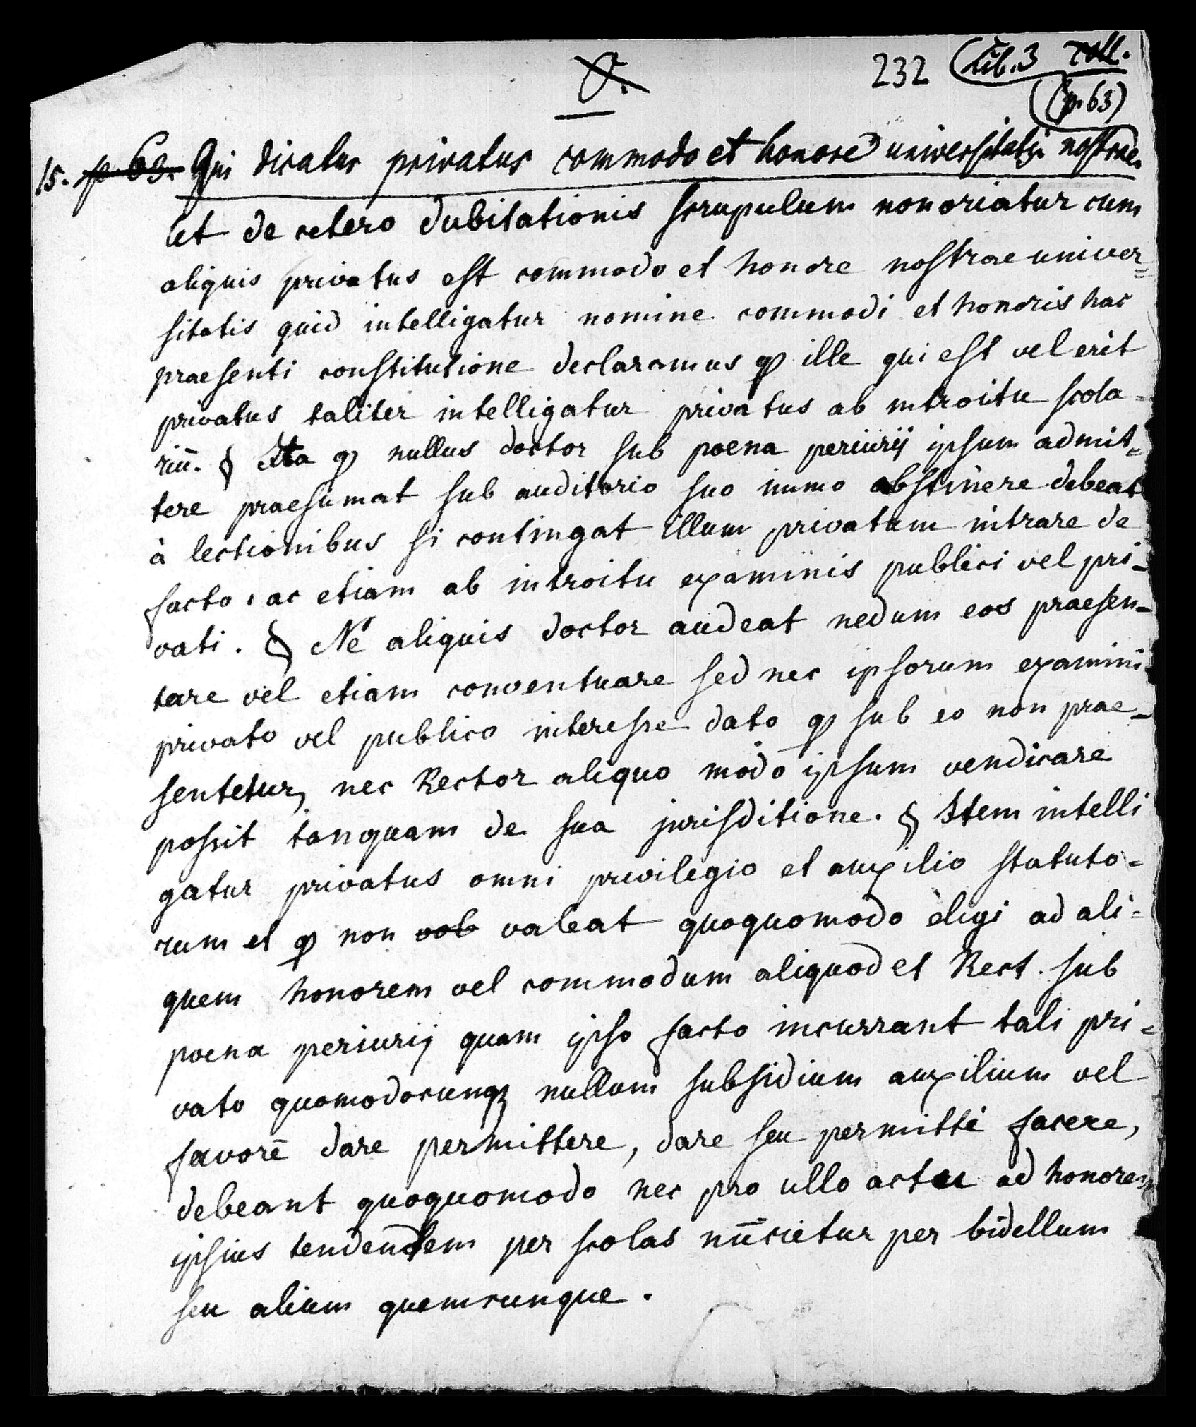 232 Lib. 3 Coll.
(p. 63)
15. p. 63. Qui dicatur privatus commodo et honore universitatis nostrae.
Ut de cetero dubitationis scrupulum non oriatur cum
aliquis privatus est commodo et honore nostrae univer=
sitatis quid intelligatur nomine commodi et honoris hac
praesenti constitutione declaramus qp ille qui est vel erit
privatus taliter intelligatur privatus ab introitu scola-
riū. § Ita qp nullus doctor sub poena periurij ipsum admit-
tere praesumat sub auditorio suo immo abstinere debeat
à lectionibus si contingat illum privatum intrare de
facto, ac etiam ab introitu examinis publici vel pri-
vati. § Né aliquis doctor audeat nedum eos praesen-
tare vel etiam conventuare sed nec ipsorum examini
privato vel publico interesse dato qp sub eo non prae-
sentetur, nec Rector aliquo modo ipsum vendicare
possit tanquam de sua jurisditione. § Item intelli
gatur privatus omni privilegio et auxilio statuto-
rum et qp non vob valeat quoquomodo eligi ad ali-
quem honorem vel commodum aliquod et Rect. sub
poena periurij quam ipso facto incurrant tali pri-
vato quomodocunq; nullum subsidium auxilium vel
favorē dare permittere, dare seu permitti facere,
debeant quoquomodo nec pro ullo actu ad honorem
ipsius tendendem per scolas nūcietur per bidellum
seu alium quemcunque.